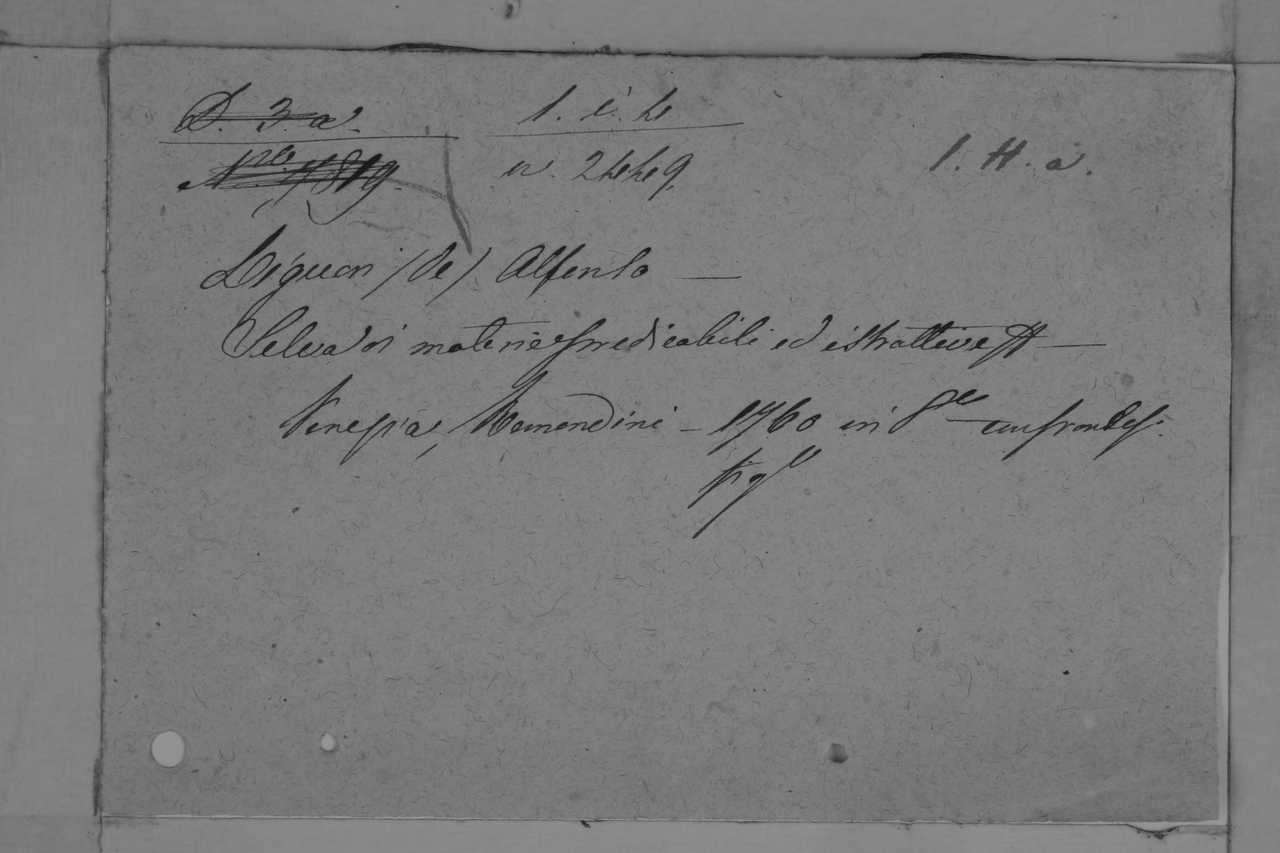 D. 3. a.
1. i. 4
No. 1819.
n. 2449
1. H. a.
Liguori (de) Alfonso —
Selva di materie predicabili ed istruttive —
Venezia, Remondini — 1760 in 8° con frontesp.
fig°